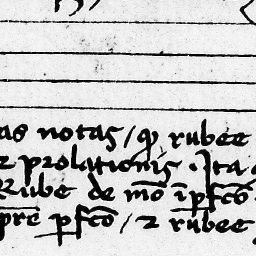 as notas / qd rubee
prolationis . Ita
Rube de mō īpfcō
pre pfcō / 2 rubee